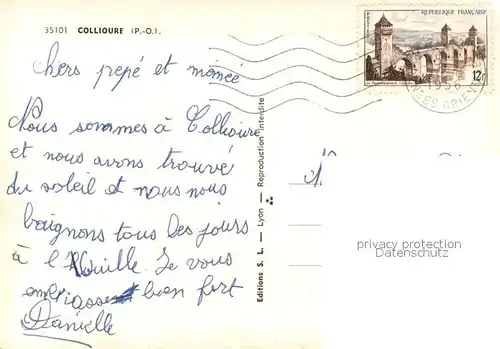 35101 COLLIOURE (P.-O.).
chers pepé et mamée
Nous sommes à Collioure
et nous avons trouvé
du soleil et nous nous
baignons tous les jours
à l'Houille. Je vous
embrasse bien fort
Danielle
Editions S. L. — Lyon — Reproduction interdite
REPUBLIQUE FRANÇAISE
12F
privacy protection
Datenschutz